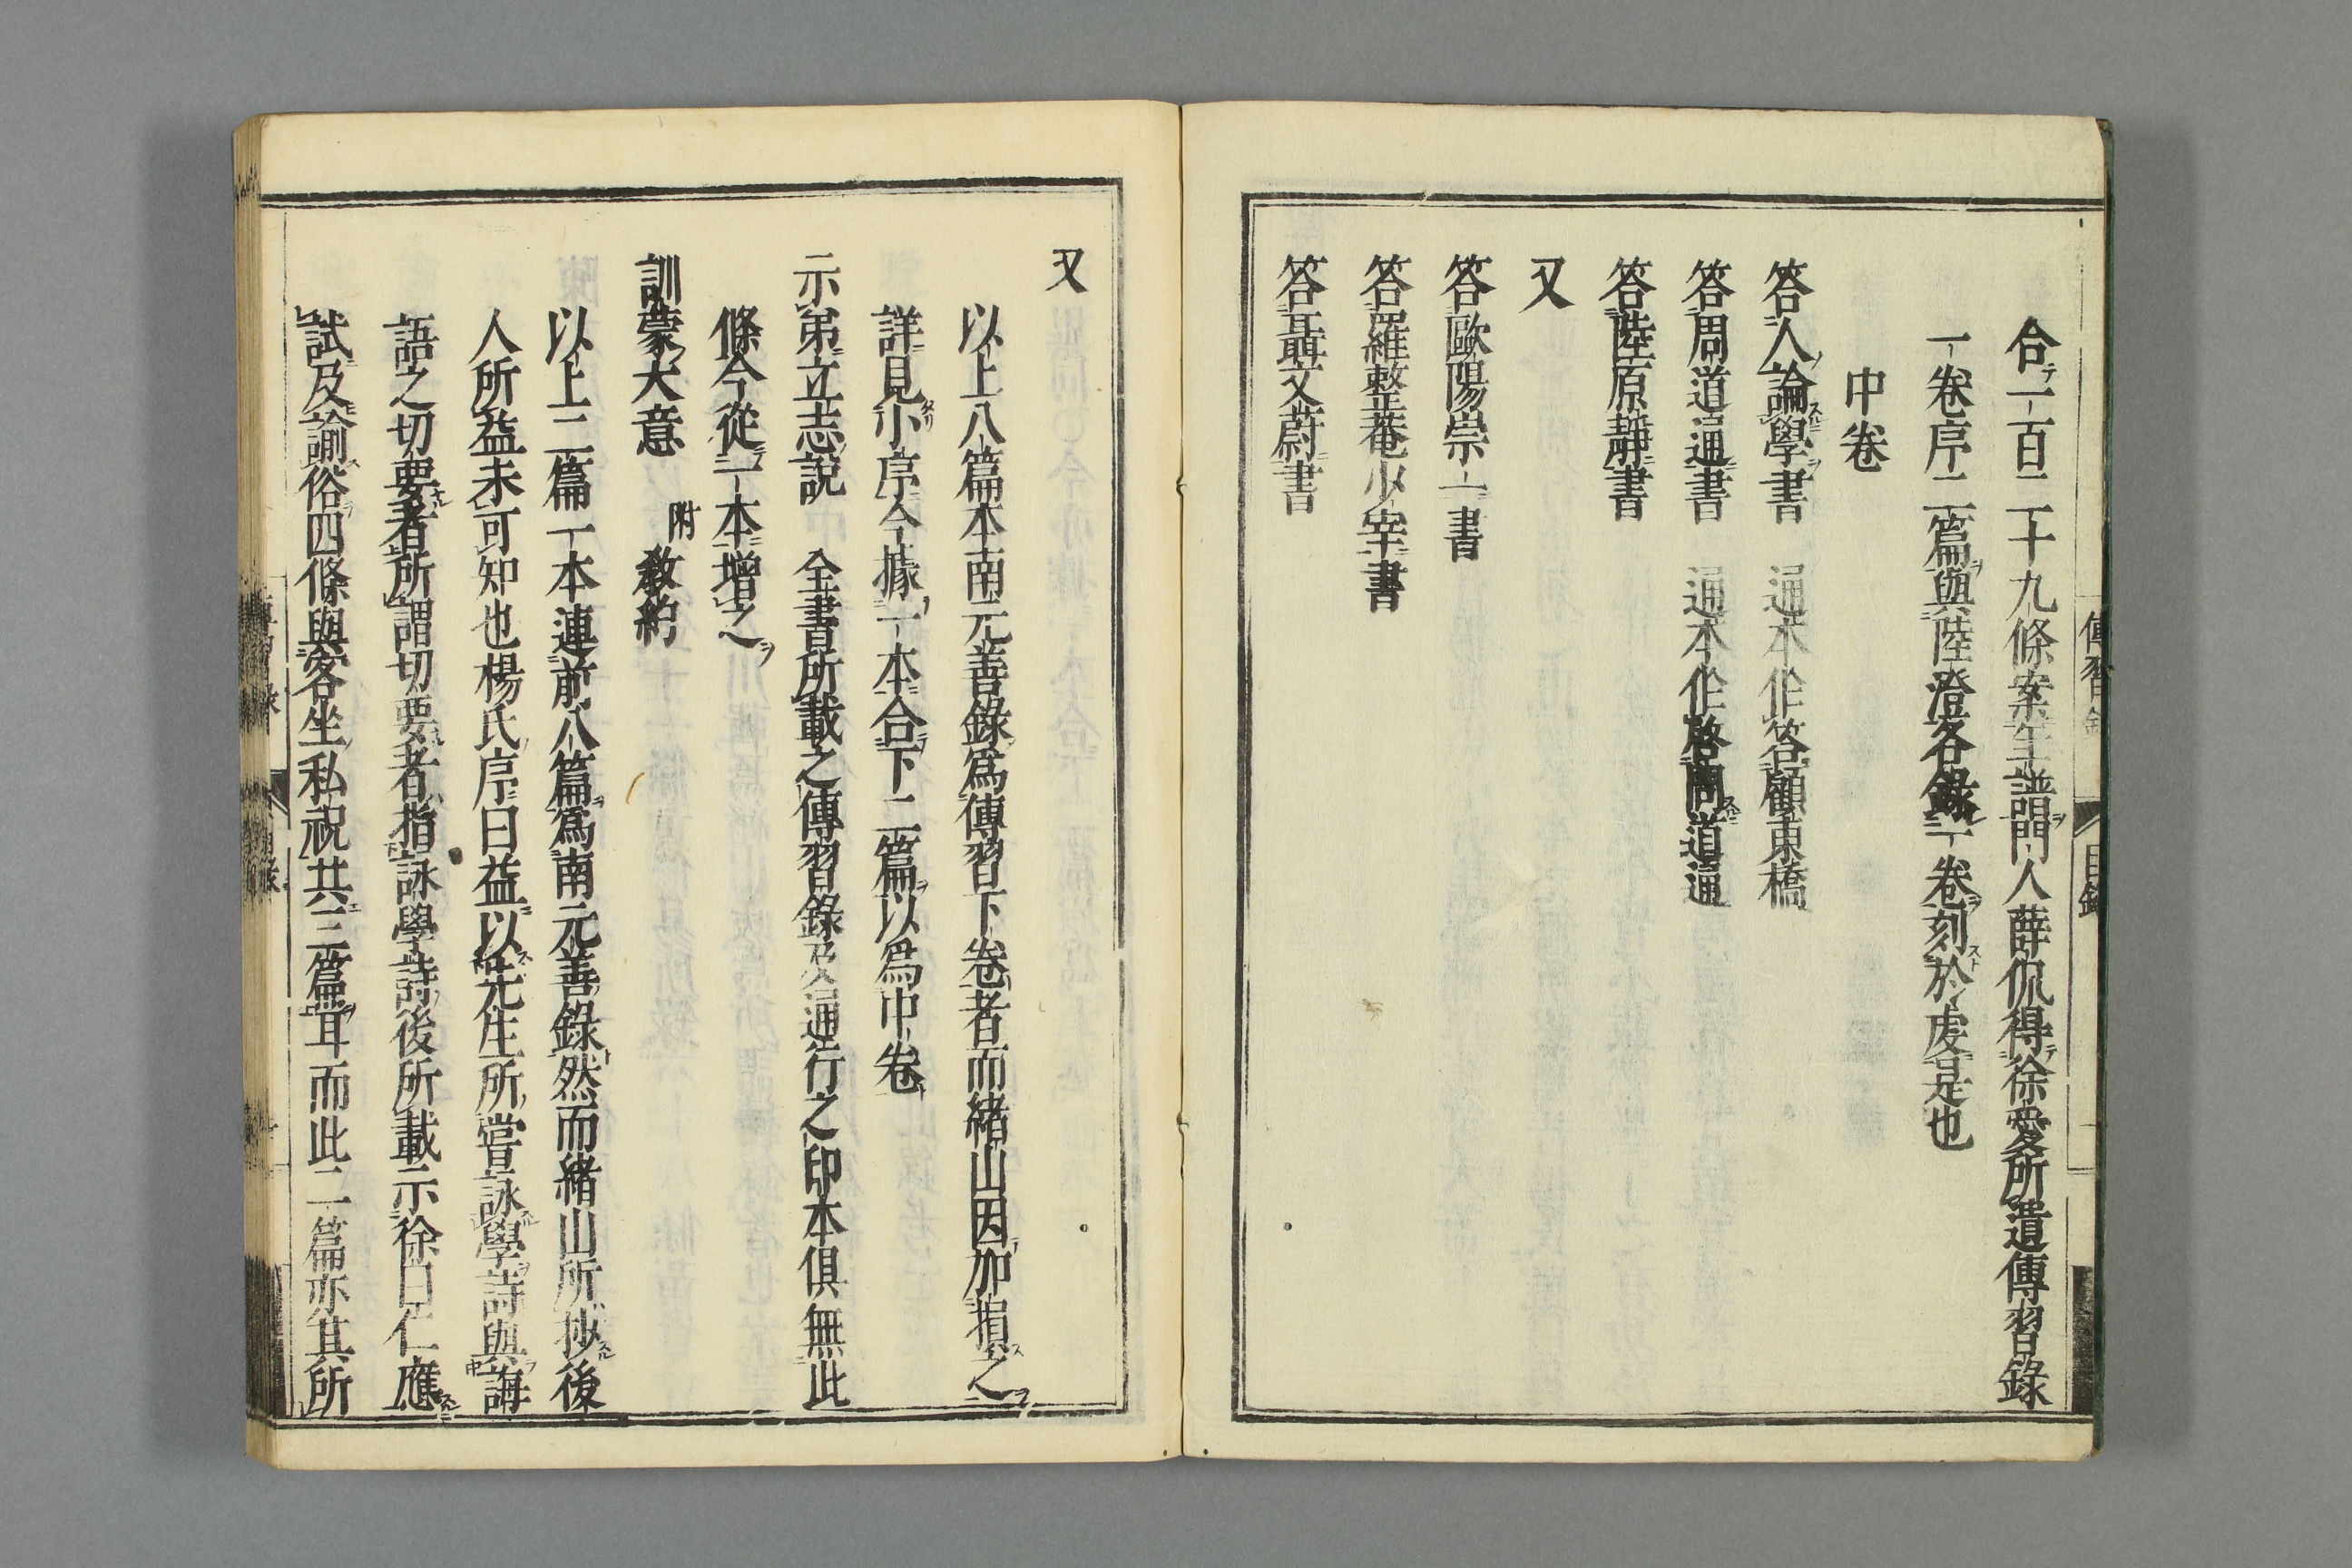 合一百二十九條案年譜門人薛侃得徐愛所遺傳習錄
一卷序二篇與陸澄各錄一卷刻於虔是也
中卷
答人論學書　通本作答顧東橋
答周道通書　通本作啓問道通
答陸原靜書
又
答歐陽崇一書
答羅整菴少宰書
答聶文蔚書
又
以上八篇本南元善錄爲傳習下卷者而緒山因加損之
詳見小序今據一本合下二篇以爲中卷
示弟立志說　全書所載之傳習錄及通行之印本俱無此
條今從一本增之
訓蒙大意　附教約
以上二篇一本連前八篇爲南元善錄然而緒山所抄後
人所益未可知也楊氏序曰益以先生所嘗詠學詩與誨
語之切要者所謂切要者指詠學詩後所載示徐曰仁應
試及諭俗四條與客坐私祝共三篇耳而此二篇亦其所